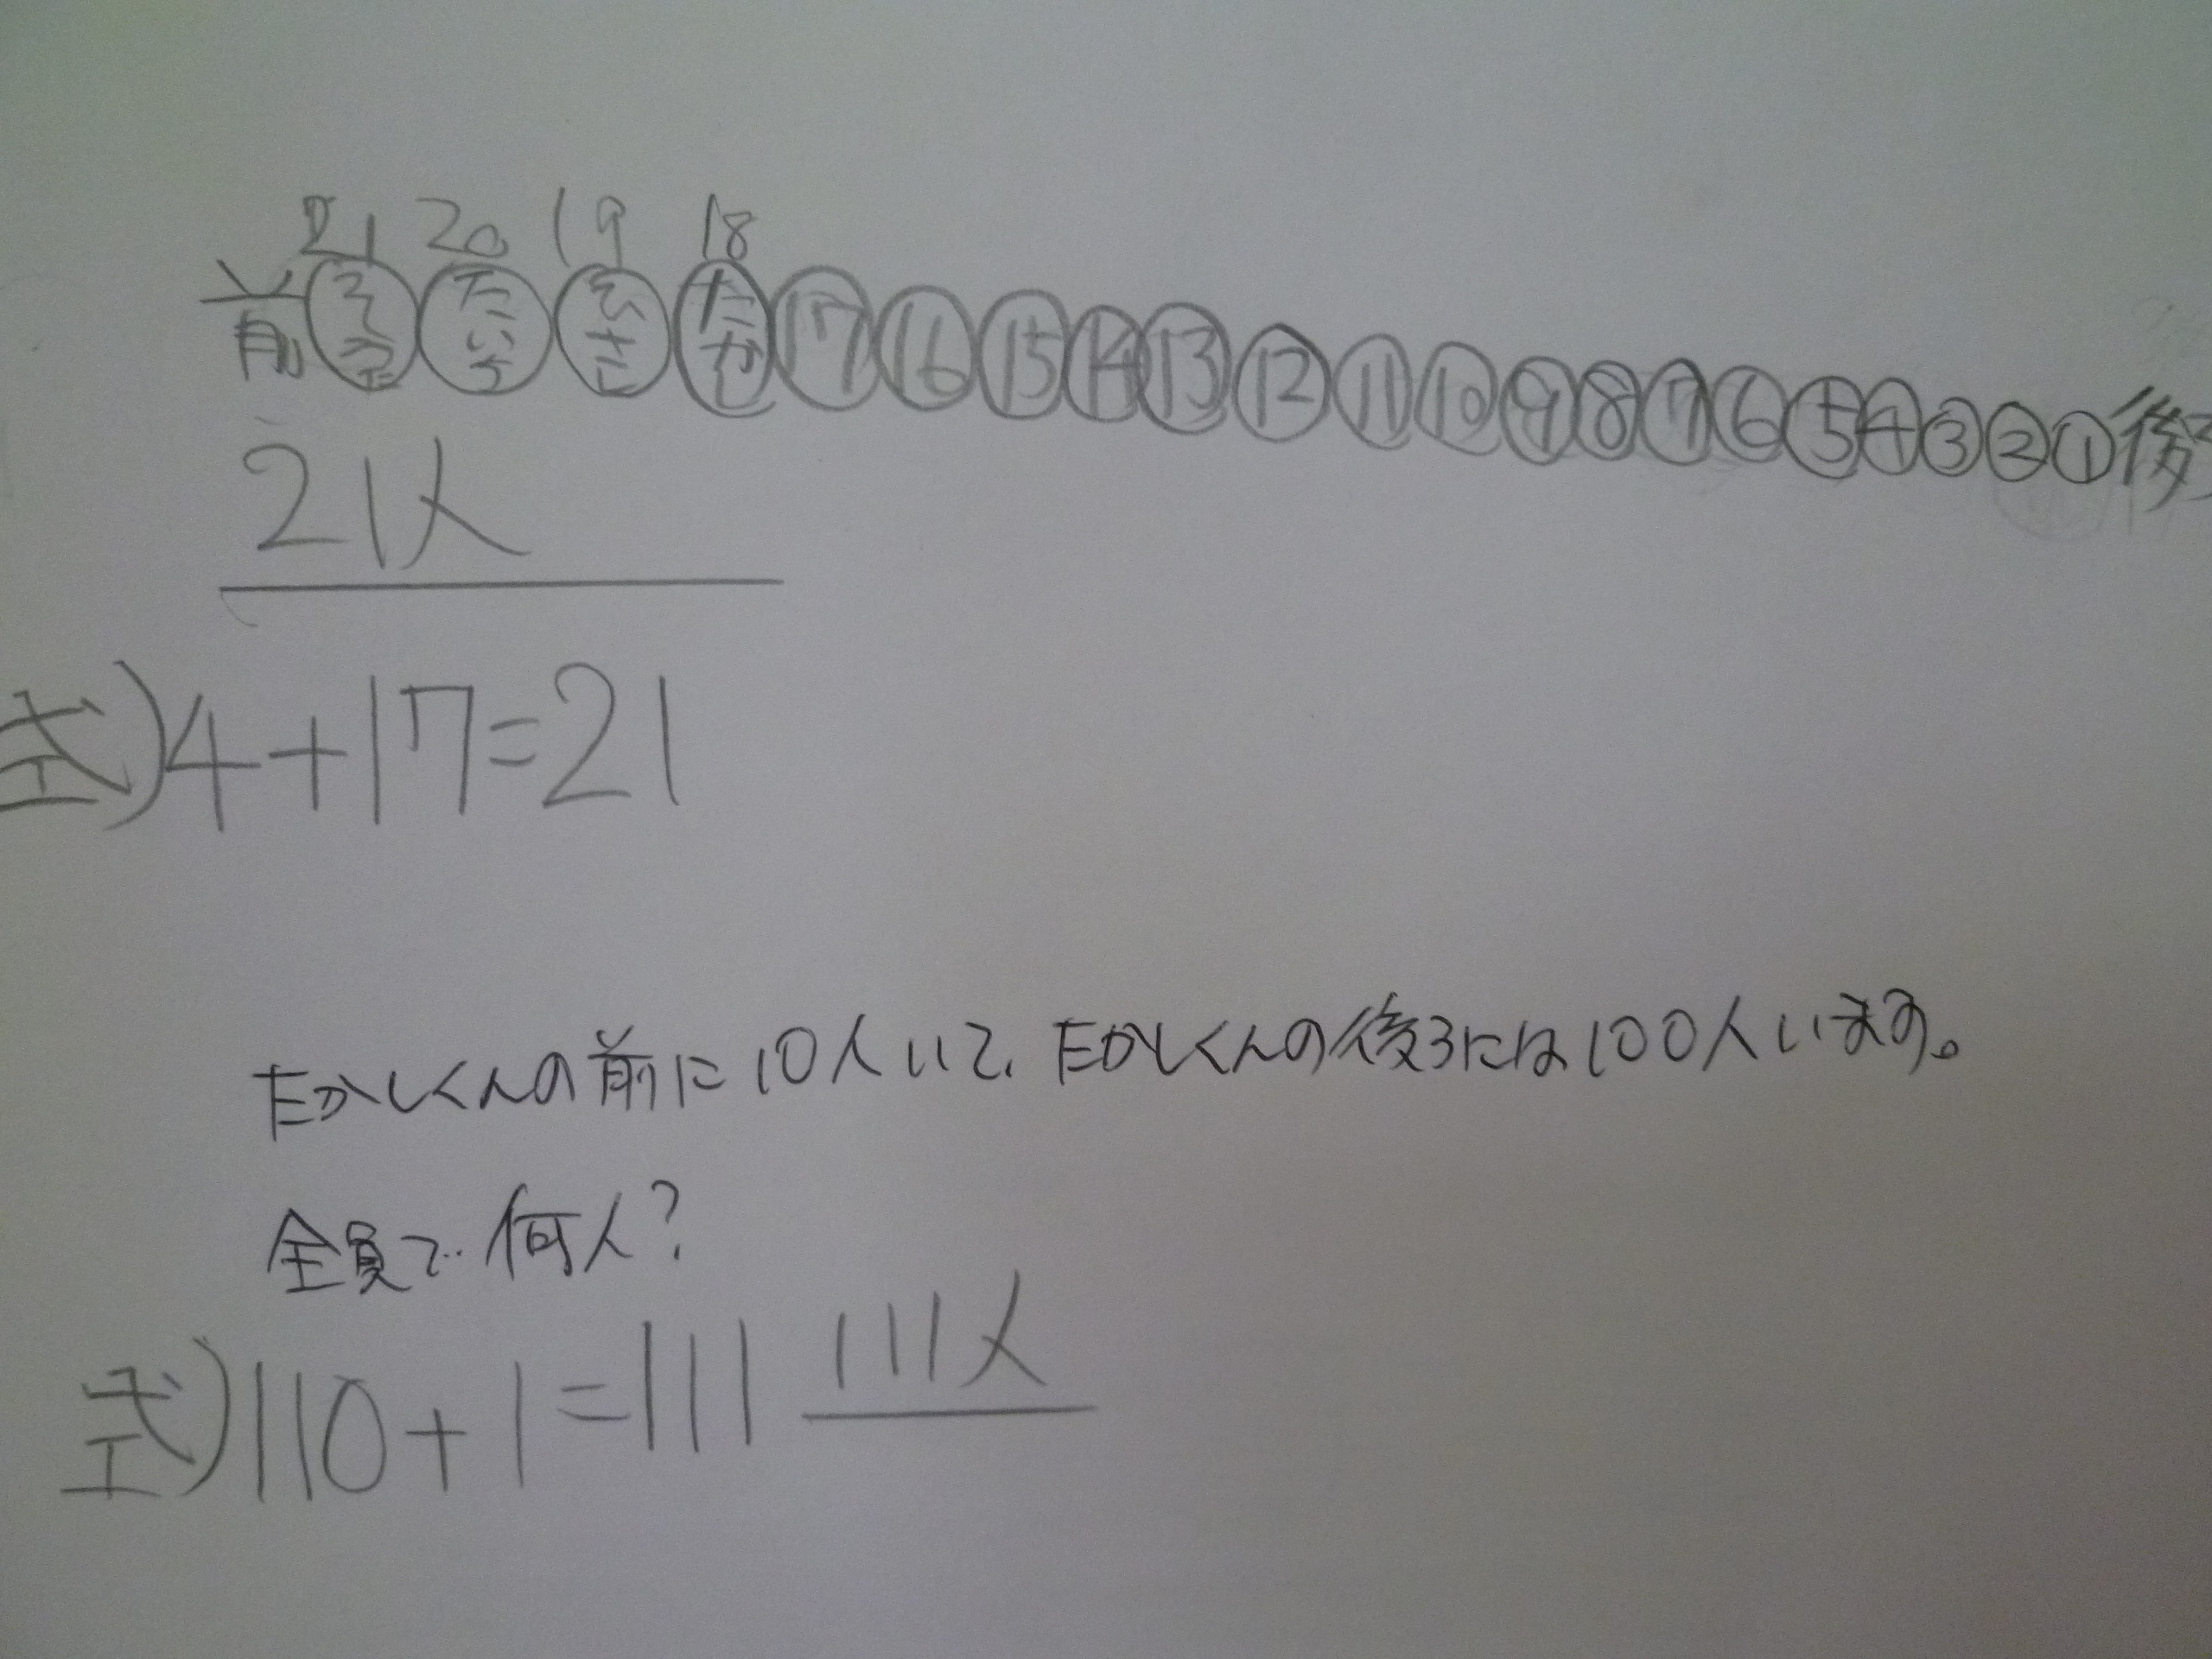 21 20 19 18
前 たいち まさし たかし ⑰ ⑯ ⑮ ⑭ ⑬ ⑫ ⑪ ⑩ ⑨ ⑧ ⑦ ⑥ ⑤ ④ ③ ② ① 後ろ
21人
式)4+17=21
たかしくんの前に10人いて、たかしくんの後ろには100人います。
全員で何人?
式)110+1=111 111人